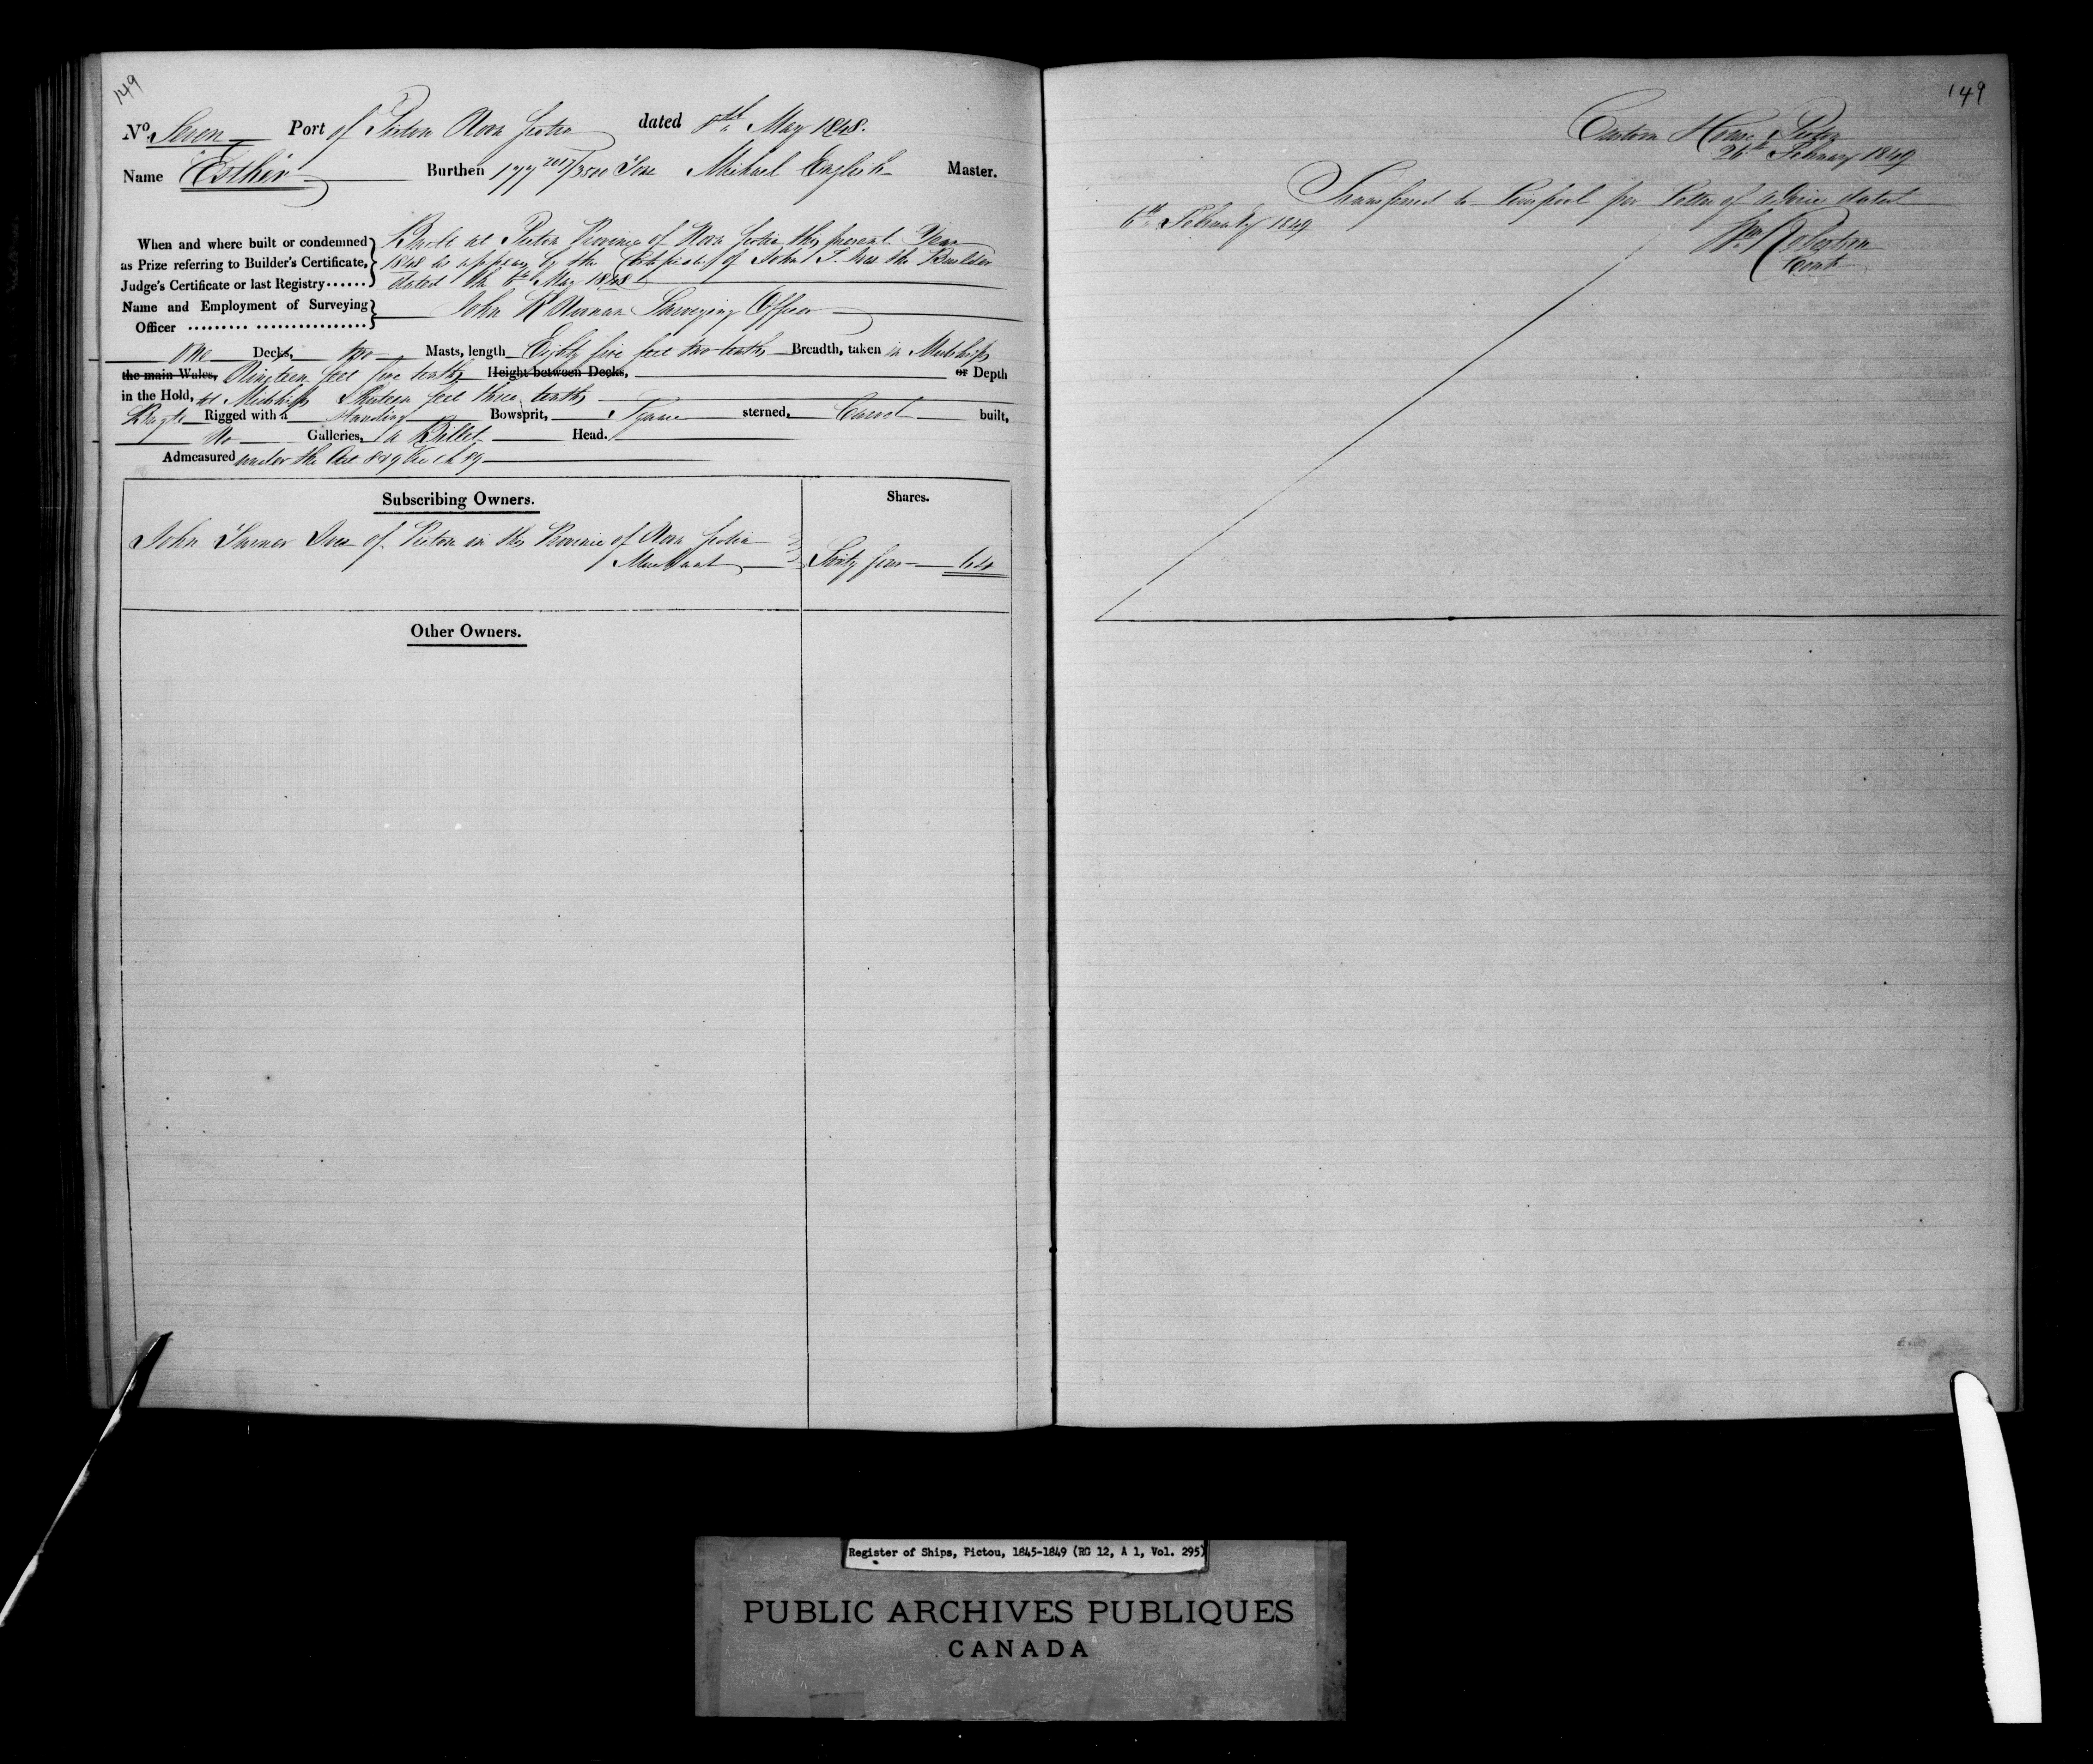 149
No. Seven Port of Pictou Nova Scotia dated 8th May 1848.
Name Esther Burthen 177 2017/3500 Tons Michael English Master.
When and where built or condemned as Prize referring to Builder's Certificate, Judge's Certificate or last Registry......
Built at Pictou Province of Nova Scotia this present Year
1848 as appears by the Certificate of John T. Ives the Builder
dated the 6th May 1848
Name and Employment of Surveying Officer ......... ................ John Surveying Officer
One Decks, two Masts, length Eighty five feet two tenths Breadth, taken in Midships
the main Wales, Nineteen feet five tenths Height between Decks, or Depth
in the Hold, at Midships Thirteen feet three tenths
Brigt. Rigged with a Standing Bowsprit, Square sterned, Carvel built,
No Galleries, a Billet Head.
Admeasured under the Act 8 & 9 Vic Ch 89
Subscribing Owners. Shares.
John Turner Ives of Pictou in the Province of Nova Scotia
Merchant Sixty four 64
Other Owners.
149
Custom House Pictou
26th February 1849
Transferred to Liverpool per Letter of advice dated
6th February 1849
Wm Robertson
Cont
Register of Ships, Pictou, 1845-1849 (RG 12, A 1, Vol. 295)
PUBLIC ARCHIVES PUBLIQUES
CANADA